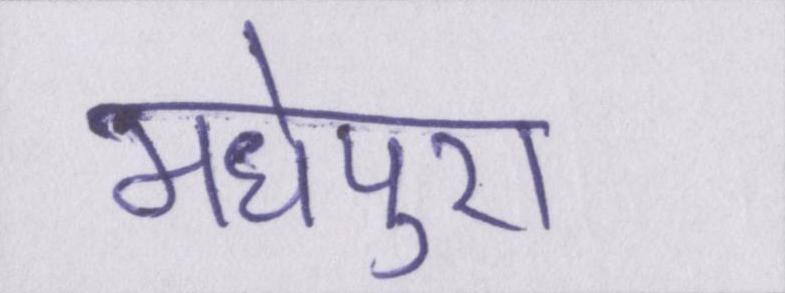 मधेपुरा